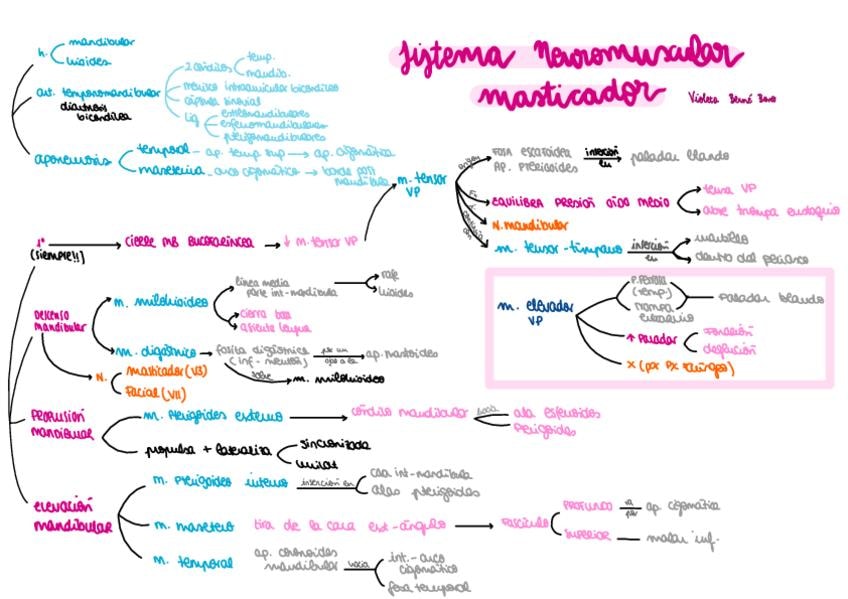 Sistema Neuromuscular
masticador
h.
mandibular
hioides
art. temporomandibular
diartrosis
bicondílea
2 cóndilos
temp.
mandib.
menisco intraarticular bicondíleo
cápsula sinovial
lig
estilomandibulares
esfenomandibulares
pterigomandibulares
aponeurosis
temporal - ap. temp sup → ap. cigomática
maseterina - arco cigomático → borde post
mandíbula
1º
(siempre!!)
cierre MB bucofaríngea → ↓ m. tensor VP
m. tensor
VP
origen
FOSA ESCAFOIDEA
AP. PTERIGOIDES
inserción
en
paladar blando
EQUILIBRA PRESIÓN OÍDO MEDIO
tensa VP
abre trompa eustaquio
N. mandibular
m. tensor-tímpano
inserción
en
martillo
m. elevador
VP
p. petrosa
(temp)
trompa
eustaquio
Paladar blando
↑ Paladar
Fonación
deglución
DESCENSO
mandibular
m. milohioideo
línea media
parte int-mandíbula
rafe
hioides
cierra boca
asciende lengua
m. digástrico
fosita digástrica
(inf-mentón)
ap. mastoides
sobre
m. milohioideo
N.
masticador (V3)
Facial (VII)
PROPULSIÓN
mandibular
m. pterigoides externo
cóndilo mandibular
hacia
ala esfenoides
pterigoides
propulsa + lateraliza
sincronizada
unilat
elevación
mandibular
m. pterigoides interno
inserción en
cara int-mandíbula
alas pterigoides
m. masetero
tira de la cara ext-ángulo
FASCÍCULO
PROFUNDO
va
por
ap. cigomática
SUPERIOR
malar inf.
m. temporal
ap. coronoides
mandibular
hacia
int.-arco
cigomático
fosa temporal